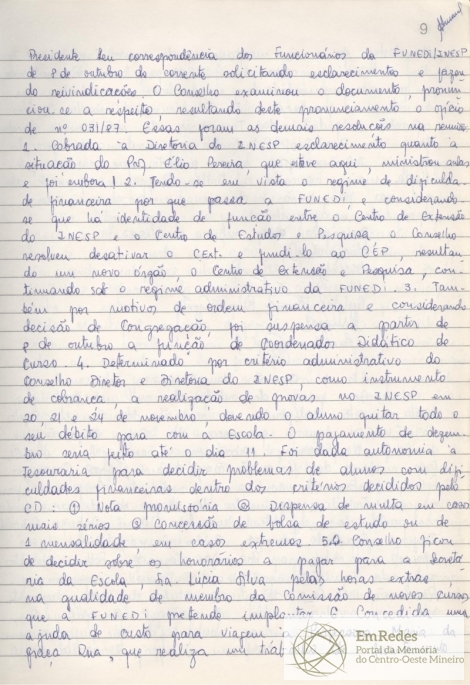 9
Presidente leu correspondência dos Funcionários da FUNEDI/INESP
de 8 de outubro do corrente solicitando esclarecimentos e fazen
do reivindicações. O Conselho examinou o documento, pronun
ciou-se a respeito, resultando deste pronunciamento o ofício
de nº 031/87. Essas foram as demais resoluções na reunião
1. Cobrada à Diretoria do INESP esclarecimento quanto à
situação do Prof. Élio Pereira, que esteve aqui, ministrou aulas
e foi embora! 2. Tendo-se em vista o regime de dificulda
de financeira por que passa a FUNEDI e considerando-
se que há identidade de função entre o Centro de Extensão
do INESP e o Centro de Estudos e Pesquisa o Conselho
resolveu desativar o CEXt. e fundi-lo ao CEP, resultan
do um novo órgão, o Centro de Extensão e Pesquisa, con-
tinuando sob o regime administrativo da FUNEDI. 3. Tam-
bém por motivos de ordem financeira e considerando
decisão de Congregação, foi suspensa a partir de
8 de outubro a função de Coordenador Didático de
Curso. 4. Determinado por critério administrativo do
Conselho Diretor e Diretoria do INESP, como instrumento
de cobrança, a realização de provas no INESP em
20, 21 e 24 de novembro, devendo o aluno quitar todo o
seu débito para com a Escola. O pagamento de dezem-
bro seria feito até o dia 11. Foi dada autonomia à
Tesouraria para decidir problemas de alunos com difi
culdades financeiras dentro dos critérios decididos pelo
CD: ① Nota promissória ② Dispensa de multa em casos
mais sérios ③ Concessão de bolsa de estudo ou de
1 mensalidade, em casos extremos. 5. O Conselho ficou
de decidir sobre os honorários a pagar para a Secretá
ria da Escola, Sra. Lúcia Silva pelas horas extras,
na qualidade de membro da Comissão de novos cursos
que a FUNEDI pretende implantar. 6. Concedida uma
ajuda de custo para viagem
que realiza um
EmRedes
Portal da Memória
do Centro-Oeste Mineiro